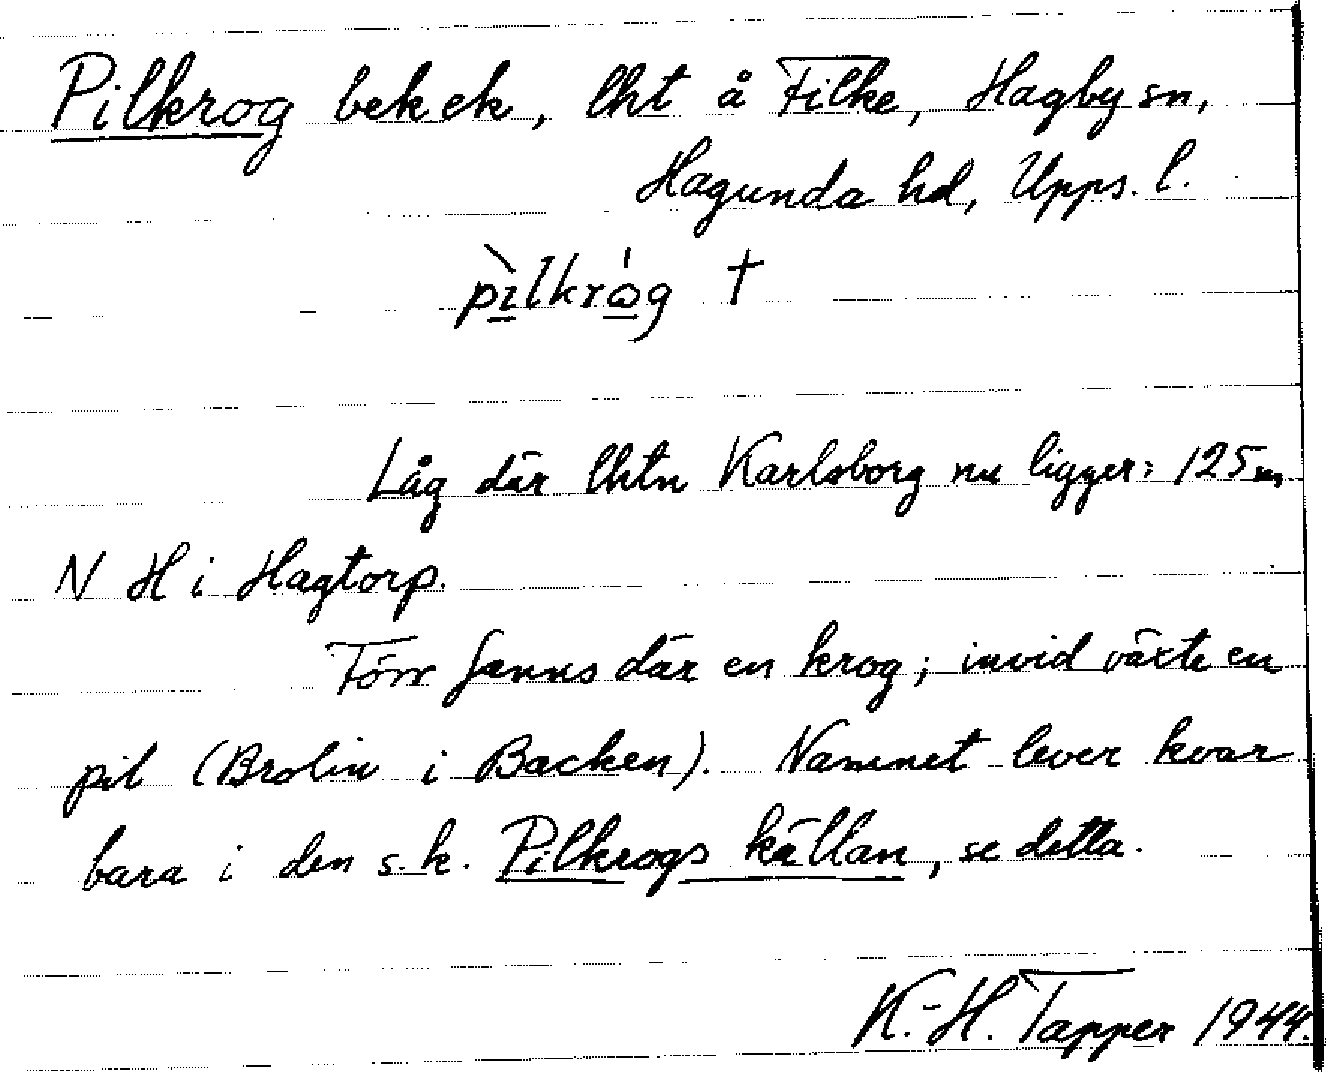 Pilkrog bek ek, lht å Filke, Hagby sn,
Hagunda hd, Upps. l.
pìlkróg †
Låg där lhtn Karlsborg nu ligger: 125 m
N H i Hagtorp.
Förr fanns där en krog; invid växte en
pil (Brolin i Backen). Namnet lever kvar
bara i den s.k. Pilkrogs källan, se detta.
K.-H. Tapper 1944.